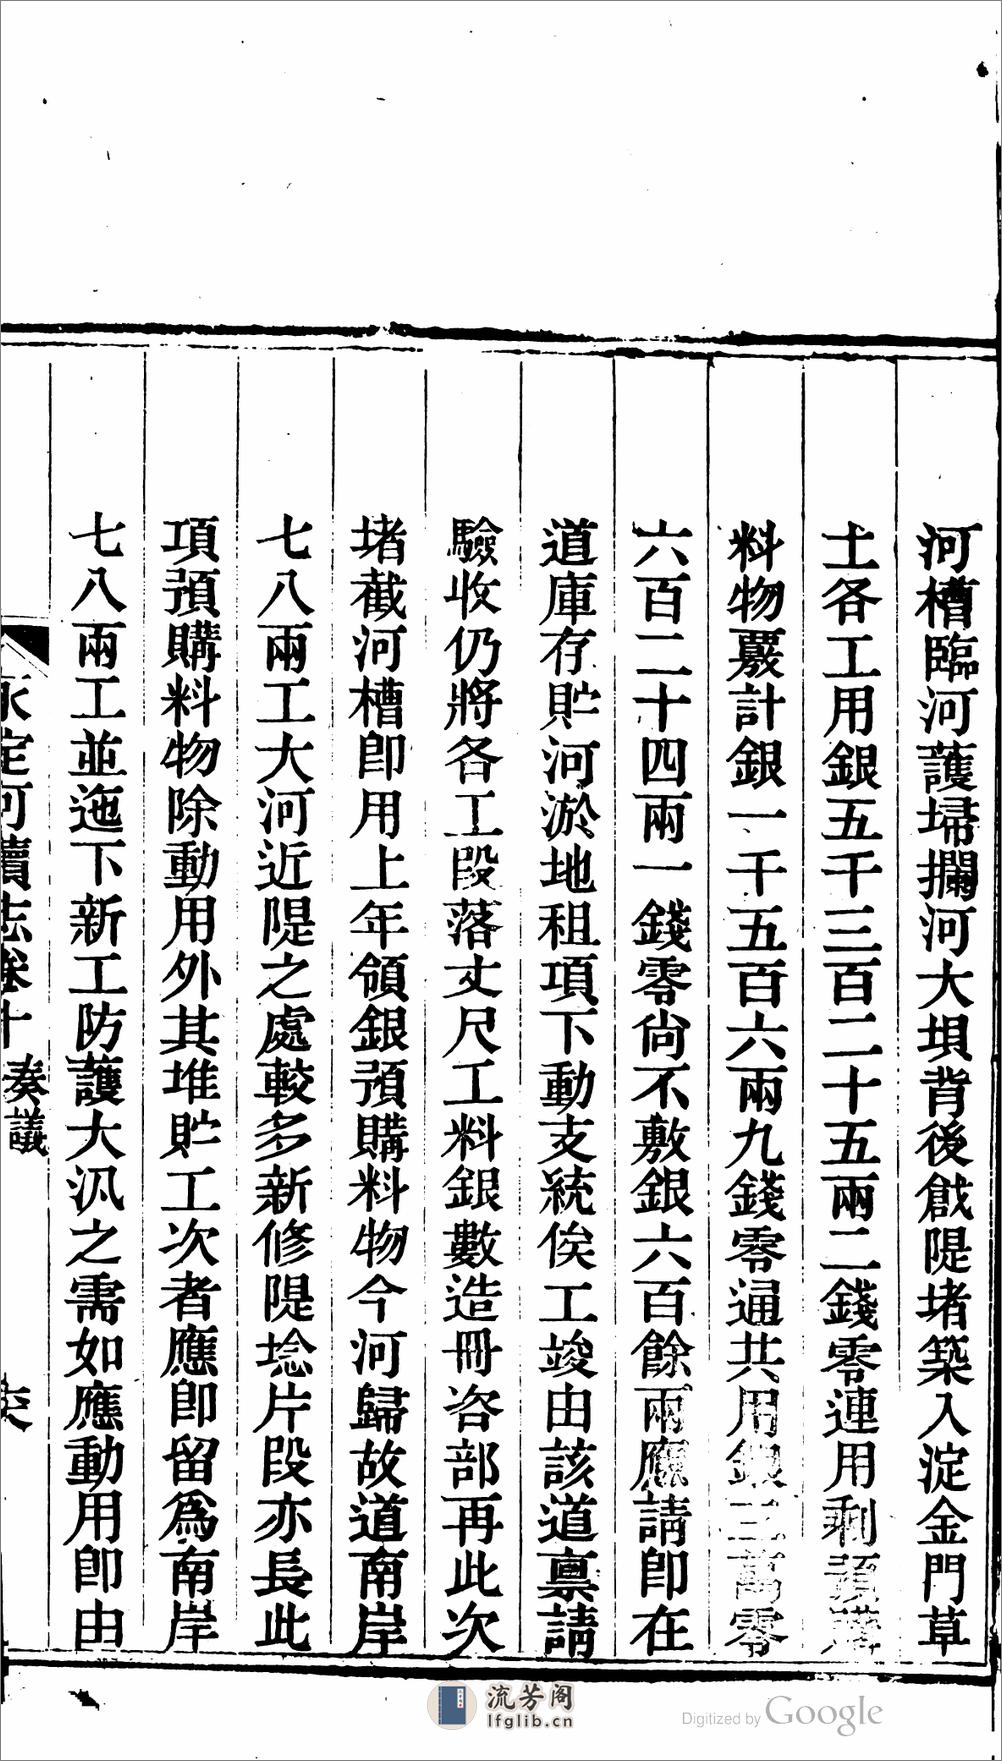 河槽臨河護埽攔河大壩背後戧隄堵築入淀金門草
土各工用銀五千三百二十五兩二錢零連用剩預購
料物覈計銀一千五百六兩九錢零通共用銀三萬零
六百二十四兩一錢零尙不敷銀六百餘兩應請卽在
道庫存貯河淤地租項下動支統俟工竣由該道稟請
驗收仍將各工段落丈尺工料銀數造冊咨部再此次
堵截河槽卽用上年領銀預購料物今河歸故道南岸
七八兩工大河近隄之處較多新修隄埝片段亦長此
項預購料物除動用外其堆貯工次者應卽留爲南岸
七八兩工並迤下新工防護大汛之需如應動用卽由
永定河續志卷十 奏議
流芳阁
lfglib.cn
Digitized by Google